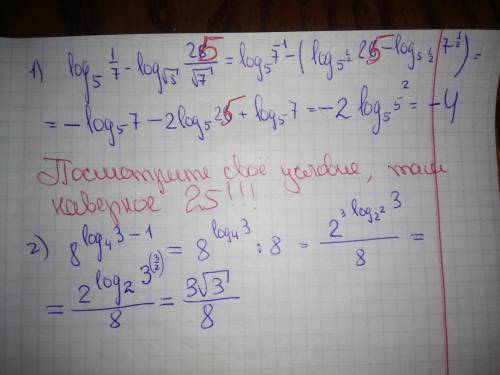 1) log₅ 1/7 - log_√5 25/√7 = log₅ 7⁻¹ - (log_5^(1/2) 25 - log_5^(1/2) 7^(1/2)) =
= - log₅ 7 - 2 log₅ 25 + log₅ 7 = -2 log₅ 5² = -4
Посмотрите своё условие, там
наверное 25!!!
2) 8^(log₄ 3 - 1) = 8^(log₄ 3) : 8 = 2^(3 log_2² 3) / 8 =
= 2^(log₂ 3^(3/2)) / 8 = 3√3 / 8